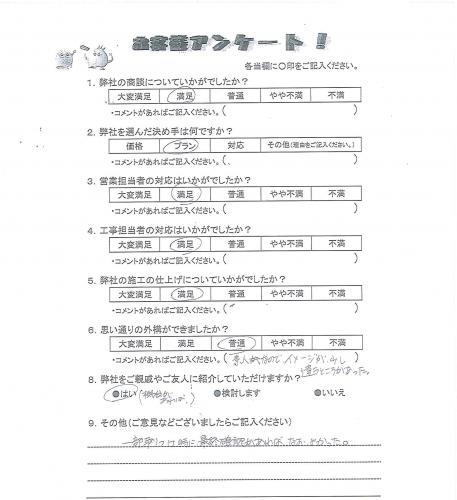 お客様アンケート!
各当欄に○印をご記入ください。
1. 弊社の商談についていかがでしたか?
大変満足 満足 普通 やや不満 不満
・コメントがあればご記入ください。( )
2. 弊社を選んだ決め手は何ですか?
価格 プラン 対応 その他(理由をご記入ください。)
・コメントがあればご記入ください。( )
3. 営業担当者の対応はいかがでしたか?
大変満足 満足 普通 やや不満 不満
・コメントがあればご記入ください。( )
4. 工事担当者の対応はいかがでしたか?
大変満足 満足 普通 やや不満 不満
・コメントがあればご記入ください。( )
5. 弊社の施工の仕上げについていかがでしたか?
大変満足 満足 普通 やや不満 不満
・コメントがあればご記入ください。( )
6. 思い通りの外構ができましたか?
大変満足 満足 普通 やや不満 不満
・コメントがあればご記入ください。(素人なので イメージが少し
違うところがあった。)
8. 弊社をご親戚やご友人に紹介していただけますか?
●はい(機会があれば。) ●検討します ●いいえ
9. その他(ご意見などございましたらご記入ください)
一部取りつけ時に最終確認があれば、なおよかった。